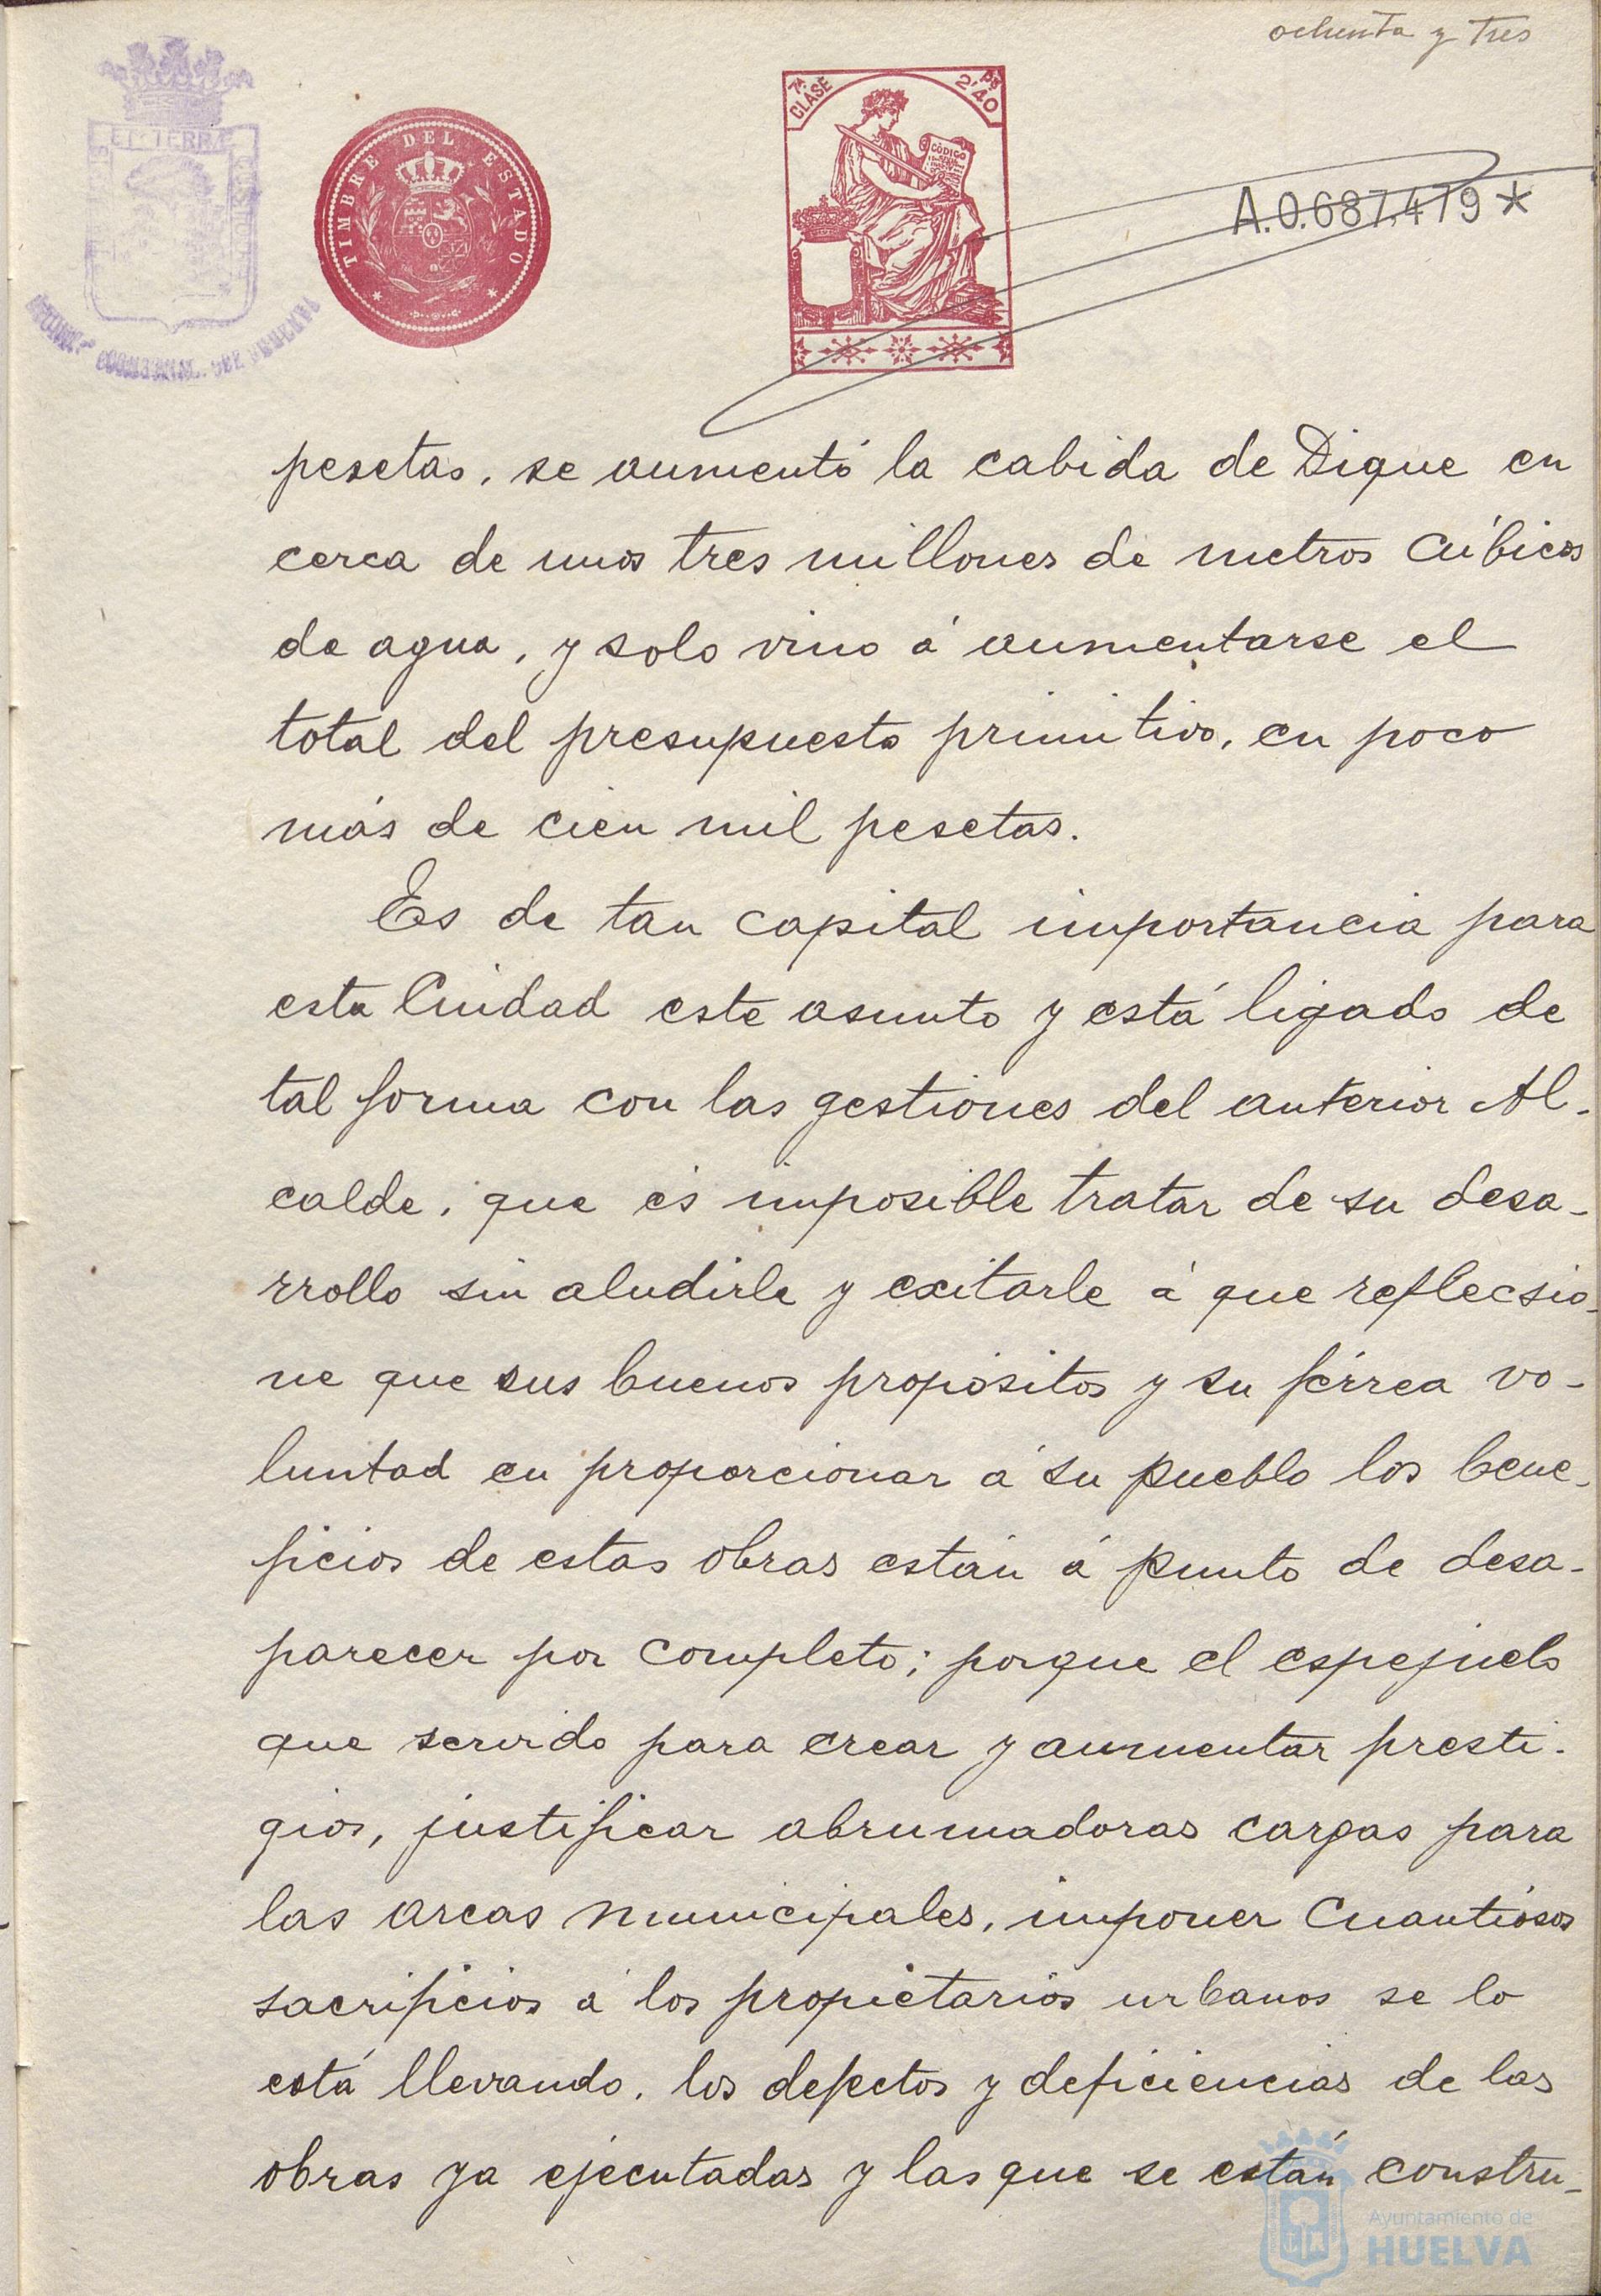 ochenta y tres
TIMBRE DEL ESTADO
7ª CLASE
2'40 Pts
CÓDIGO
A.0.687.479*
pesetas, se aumentó la cabida de Dique en
cerca de unos tres millones de metros cúbicos
de agua, y solo vino á aumentarse el
total del presupuesto primitivo, en poco
más de cien mil pesetas.
Es de tan capital importancia para
esta Ciudad este asunto y está ligado de
tal forma con las gestiones del anterior Al-
calde, que es imposible tratar de su desa-
rrollo sin aludirle y exitarle á que reflecsio-
ne que sus buenos propósitos y su férrea vo-
luntad en proporcionar á su pueblo los bene-
ficios de estas obras están á punto de desa-
parecer por completo; porque el espejuelo
que servido para crear y aumentar presti-
gios, justificar abrumadoras cargas para
las arcas municipales, imponer cuantiosos
sacrificios á los propietarios urbanos se lo
está llevando, los defectos y deficiencias de las
obras ya ejecutadas y las que se están constru-
Ayuntamiento de
HUELVA